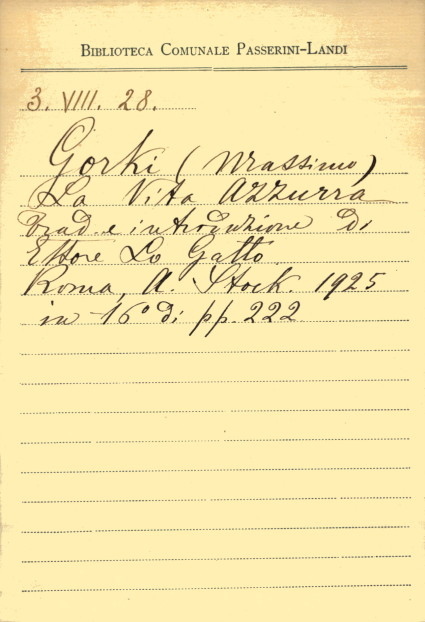 BIBLIOTECA COMUNALE PASSERINI-LANDI
3. VIII. 28.
Gorki (Massimo)
La Vita Azzurra
Trad. e introduzione di
Ettore Lo Gatto
Roma, A. Stock. 1925
in 16° di pp. 222